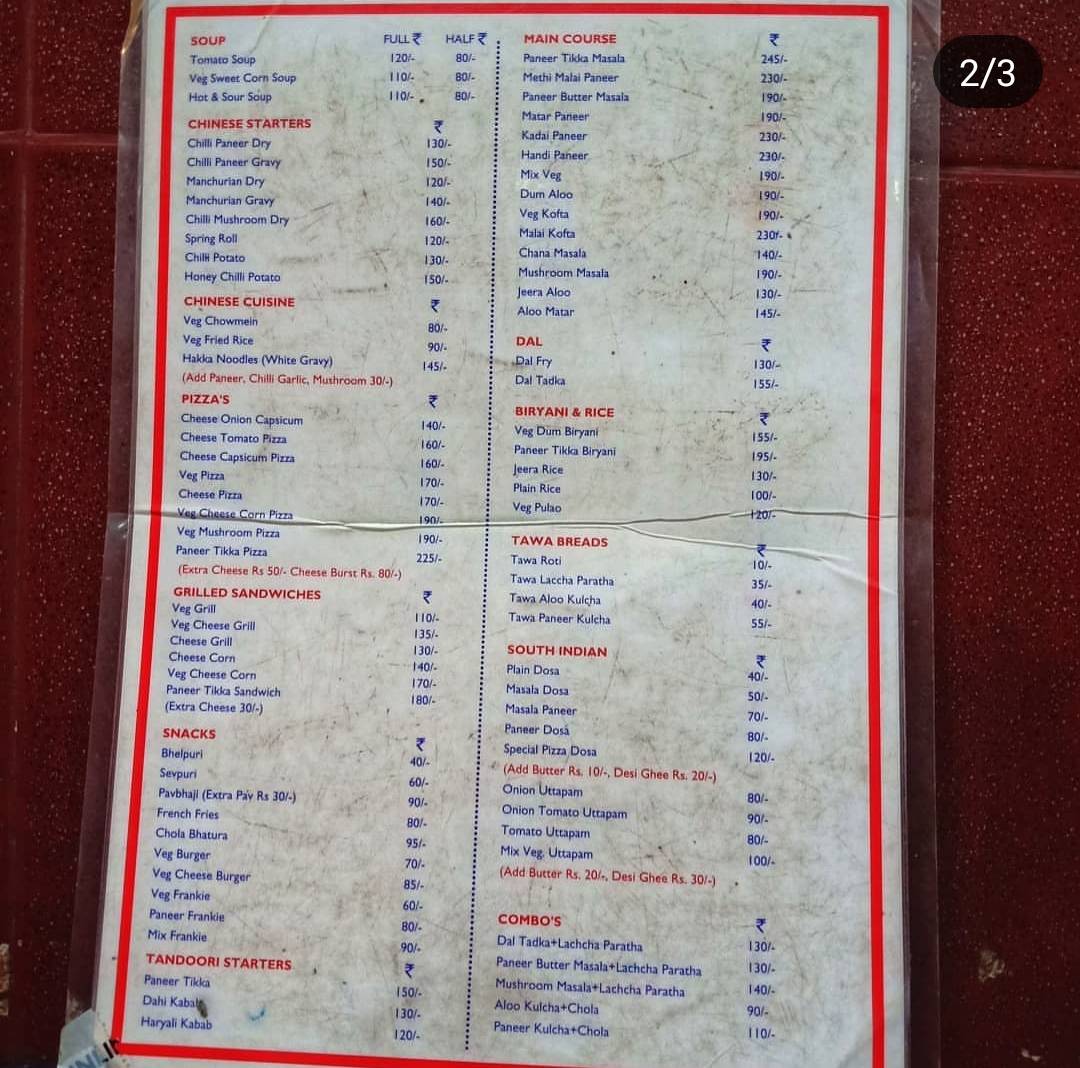 2/3
SOUP FULL ₹ HALF ₹
Tomato Soup 120/- 80/-
Veg Sweet Corn Soup 110/- 80/-
Hot & Sour Soup 110/- 80/-
CHINESE STARTERS ₹
Chilli Paneer Dry 130/-
Chilli Paneer Gravy 150/-
Manchurian Dry 120/-
Manchurian Gravy 140/-
Chilli Mushroom Dry 160/-
Spring Roll 120/-
Chilli Potato 130/-
Honey Chilli Potato 150/-
CHINESE CUISINE ₹
Veg Chowmein 80/-
Veg Fried Rice 90/-
Hakka Noodles (White Gravy) 145/-
(Add Paneer, Chilli Garlic, Mushroom 30/-)
PIZZA'S ₹
Cheese Onion Capsicum 140/-
Cheese Tomato Pizza 160/-
Cheese Capsicum Pizza 160/-
Veg Pizza 170/-
Cheese Pizza 170/-
Veg Cheese Corn Pizza 190/-
Veg Mushroom Pizza 190/-
Paneer Tikka Pizza 225/-
(Extra Cheese Rs 50/- Cheese Burst Rs. 80/-)
GRILLED SANDWICHES ₹
Veg Grill 110/-
Veg Cheese Grill 135/-
Cheese Grill 130/-
Cheese Corn 140/-
Veg Cheese Corn 170/-
Paneer Tikka Sandwich 180/-
(Extra Cheese 30/-)
SNACKS ₹
Bhelpuri 40/-
Sevpuri 60/-
Pavbhaji (Extra Pav Rs 30/-) 90/-
French Fries 80/-
Chola Bhatura 95/-
Veg Burger 70/-
Veg Cheese Burger 85/-
Veg Frankie 60/-
Paneer Frankie 80/-
Mix Frankie 90/-
TANDOORI STARTERS ₹
Paneer Tikka 150/-
Dahi Kabab 130/-
Haryali Kabab 120/-
MAIN COURSE ₹
Paneer Tikka Masala 245/-
Methi Malai Paneer 230/-
Paneer Butter Masala 190/-
Matar Paneer 190/-
Kadai Paneer 230/-
Handi Paneer 230/-
Mix Veg 190/-
Dum Aloo 190/-
Veg Kofta 190/-
Malai Kofta 230/-
Chana Masala 140/-
Mushroom Masala 190/-
Jeera Aloo 130/-
Aloo Matar 145/-
DAL ₹
Dal Fry 130/-
Dal Tadka 155/-
BIRYANI & RICE ₹
Veg Dum Biryani 155/-
Paneer Tikka Biryani 195/-
Jeera Rice 130/-
Plain Rice 100/-
Veg Pulao 120/-
TAWA BREADS ₹
Tawa Roti 10/-
Tawa Laccha Paratha 35/-
Tawa Aloo Kulcha 40/-
Tawa Paneer Kulcha 55/-
SOUTH INDIAN ₹
Plain Dosa 40/-
Masala Dosa 50/-
Masala Paneer 70/-
Paneer Dosa 80/-
Special Pizza Dosa 120/-
(Add Butter Rs. 10/-, Desi Ghee Rs. 20/-)
Onion Uttapam 80/-
Onion Tomato Uttapam 90/-
Tomato Uttapam 80/-
Mix Veg. Uttapam 100/-
(Add Butter Rs. 20/-, Desi Ghee Rs. 30/-)
COMBO'S ₹
Dal Tadka+Lachcha Paratha 130/-
Paneer Butter Masala+Lachcha Paratha 130/-
Mushroom Masala+Lachcha Paratha 140/-
Aloo Kulcha+Chola 90/-
Paneer Kulcha+Chola 110/-